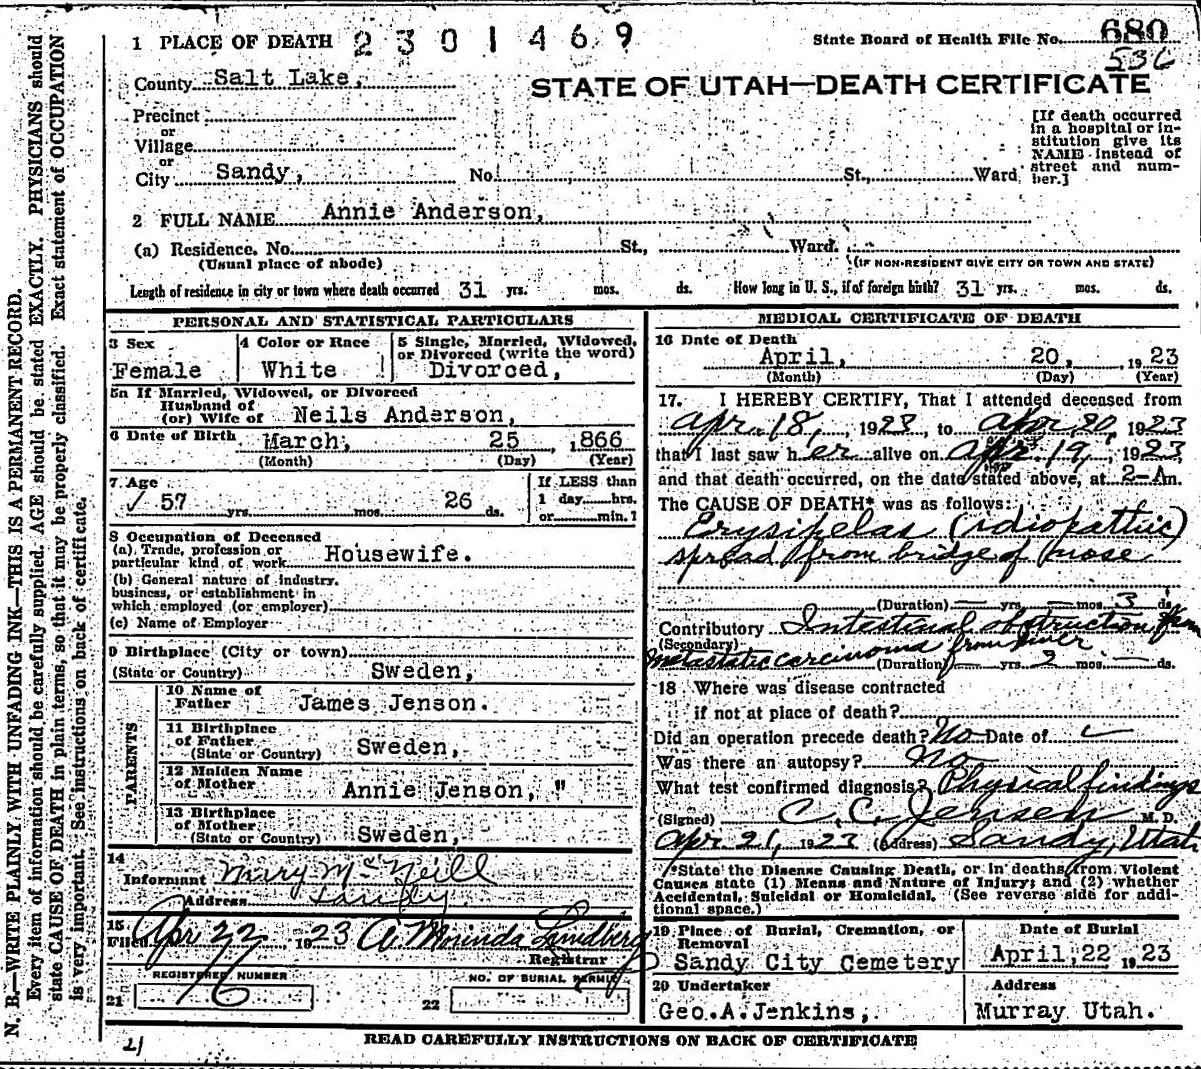 1 PLACE OF DEATH 2 3 0 1 4 6 9
State Board of Health File No. 680
536
County Salt Lake,
STATE OF UTAH—DEATH CERTIFICATE
Precinct
or
Village
or
City Sandy, No. St., Ward
[If death occurred
in a hospital or in-
stitution give its
NAME instead of
street and num-
ber.]
2 FULL NAME Annie Anderson,
(a) Residence. No. St., Ward.
(Usual place of abode)
(IF NON-RESIDENT GIVE CITY OR TOWN AND STATE)
Length of residence in city or town where death occurred 31 yrs. mos. ds. How long in U. S., if of foreign birth? 31 yrs. mos. ds.
PERSONAL AND STATISTICAL PARTICULARS
3 Sex
Female
4 Color or Race
White
5 Single, Married, Widowed,
or Divorced (write the word)
Divorced,
5a If Married, Widowed, or Divorced
Husband of
(or) Wife of Neils Anderson,
6 Date of Birth March, 25 ,866
(Month) (Day) (Year)
7 Age
✓ 57 yrs. mos. 26 ds.
If LESS than
1 day hrs.
or min.?
8 Occupation of Deceased
(a) Trade, profession or
particular kind of work Housewife.
(b) General nature of industry,
business, or establishment in
which employed (or employer)
(c) Name of Employer
9 Birthplace (City or town)
(State or Country) Sweden,
PARENTS
10 Name of
Father James Jenson.
11 Birthplace
of Father
(State or Country) Sweden,
12 Maiden Name
of Mother Annie Jenson, "
13 Birthplace
of Mother
(State or Country) Sweden,
14
Informant Mary McNeill
Address Sandy
15
Filed Apr 22, 1923 A. Morinda Lundberg
Registrar
REGISTERED NUMBER
21 16
NO. OF BURIAL PERMIT
22
MEDICAL CERTIFICATE OF DEATH
16 Date of Death
April, 20, 1923
(Month) (Day) (Year)
17. I HEREBY CERTIFY, That I attended deceased from
Apr. 18, 1923, to Apr. 20, 1923
that I last saw her alive on Apr. 19, 1923,
and that death occurred, on the date stated above, at 2-A m.
The CAUSE OF DEATH* was as follows:
Erysipelas (idiopathic)
spread from bridge of nose
(Duration) — yrs. — mos. 3 ds.
Contributory Intestinal obstruction from
(Secondary)
metastatic carcinoma from liver
(Duration) — yrs. 2 mos. — ds.
18 Where was disease contracted
if not at place of death?
Did an operation precede death? No Date of
Was there an autopsy? No
What test confirmed diagnosis? Physical findings
(Signed) C. C. Jensen M. D.
Apr 21, 1923 (Address) Sandy, Utah
*State the Disease Causing Death, or in deaths from Violent
Causes state (1) Means and Nature of Injury; and (2) whether
Accidental, Suicidal or Homicidal. (See reverse side for addi-
tional space.)
19 Place of Burial, Cremation, or
Removal
Sandy City Cemetery
Date of Burial
April, 22 1923
20 Undertaker
Geo. A. Jenkins,
Address
Murray Utah.
READ CAREFULLY INSTRUCTIONS ON BACK OF CERTIFICATE
21
N. B.—WRITE PLAINLY WITH UNFADING INK—THIS IS A PERMANENT RECORD.
Every item of information should be carefully supplied. AGE should be stated EXACTLY. PHYSICIANS should
state CAUSE OF DEATH in plain terms, so that it may be properly classified. Exact statement of OCCUPATION
is very important. See instructions on back of certificate.